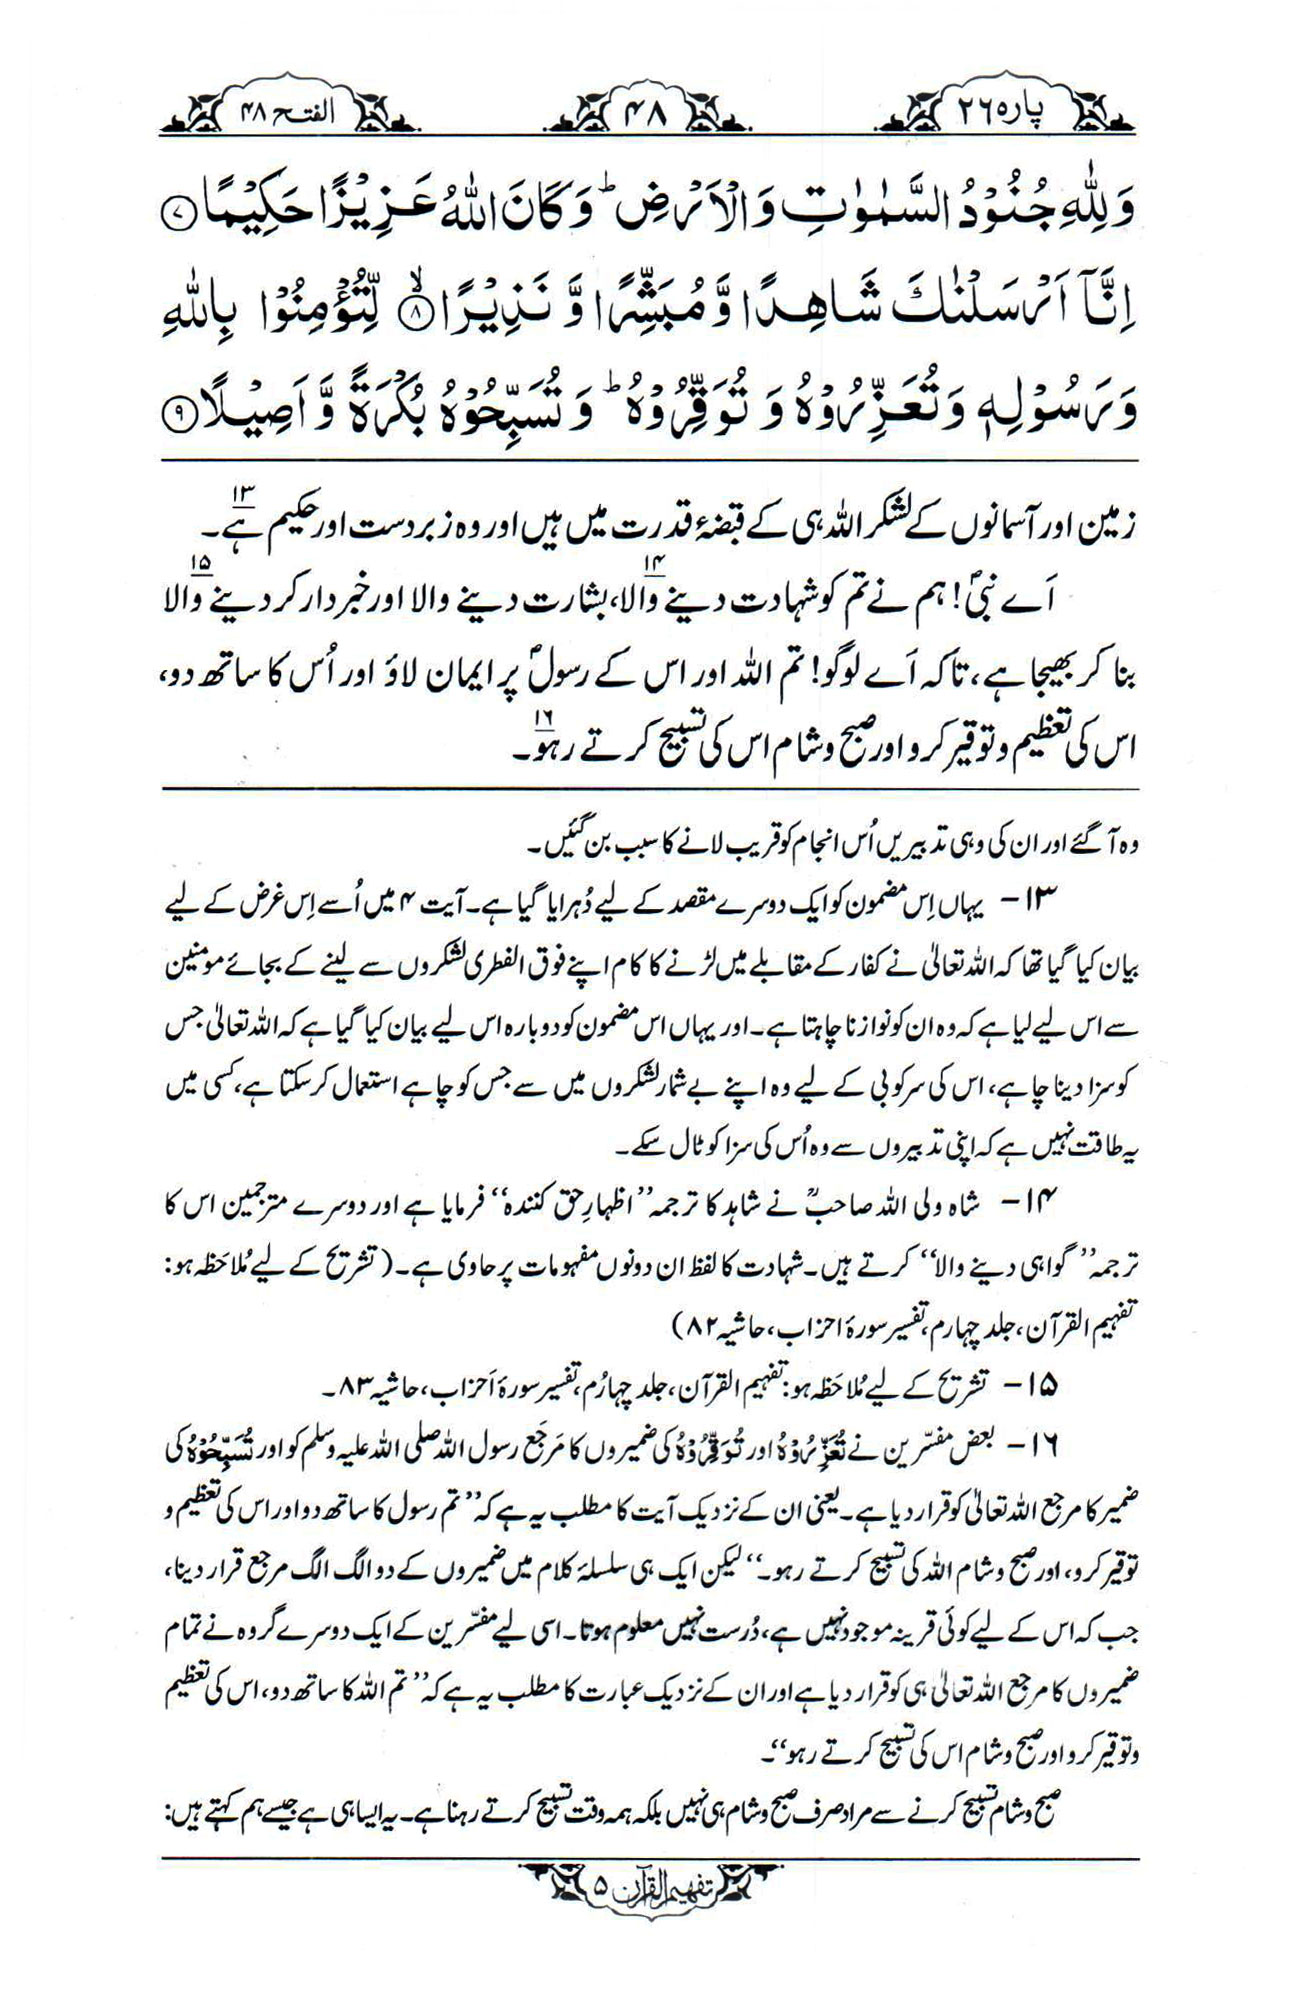 پارہ ۲۶
۴۸
الفتح ۴۸
وَلِلّٰهِ جُنُوْدُ السَّمٰوٰتِ وَالْاَرْضِ ؕ وَكَانَ اللّٰهُ عَزِيْزًا حَكِيْمًا ۷
اِنَّاۤ اَرْسَلْنٰكَ شَاهِدًا وَّ مُبَشِّرًا وَّ نَذِيْرًا ۸ۙ لِّتُؤْمِنُوْا بِاللّٰهِ
وَ رَسُوْلِهٖ وَ تُعَزِّرُوْهُ وَ تُوَقِّرُوْهُ ؕ وَ تُسَبِّحُوْهُ بُكْرَةً وَّ اَصِيْلًا ۹
زمین اور آسمانوں کے لشکر اللہ ہی کے قبضۂ قدرت میں ہیں اور وہ زبردست اور حکیم ہے۔۱۳
اَے نبیؐ! ہم نے تم کو شہادت دینے والا۱۴، بشارت دینے والا اور خبردار کر دینے والا۱۵
بنا کر بھیجا ہے، تاکہ اَے لوگو! تم اللہ اور اس کے رسولؐ پر ایمان لاؤ اور اُس کا ساتھ دو،
اس کی تعظیم و توقیر کرو اور صبح و شام اس کی تسبیح کرتے رہو۔۱۶
وہ آگئے اور ان کی وہی تدبیریں اُس انجام کو قریب لانے کا سبب بن گئیں۔
۱۳- یہاں اِس مضمون کو ایک دوسرے مقصد کے لیے دُہرایا گیا ہے۔ آیت ۴ میں اُسے اِس غرض کے لیے
بیان کیا گیا تھا کہ اللہ تعالیٰ نے کفار کے مقابلے میں لڑنے کا کام اپنے فوق الفطری لشکروں سے لینے کے بجائے مومنین
سے اس لیے لیا ہے کہ وہ ان کو نوازنا چاہتا ہے۔ اور یہاں اس مضمون کو دوبارہ اس لیے بیان کیا گیا ہے کہ اللہ تعالیٰ جس
کو سزا دینا چاہے، اس کی سرکوبی کے لیے وہ اپنے بے شمار لشکروں میں سے جس کو چاہے استعمال کر سکتا ہے، کسی میں
یہ طاقت نہیں ہے کہ اپنی تدبیروں سے وہ اُس کی سزا کو ٹال سکے۔
۱۴- شاہ ولی اللہ صاحبؒ نے شاہد کا ترجمہ ’’اظہارِ حق کنندہ‘‘ فرمایا ہے اور دوسرے مترجمین اس کا
ترجمہ ’’گواہی دینے والا‘‘ کرتے ہیں۔ شہادت کا لفظ ان دونوں مفہومات پر حاوی ہے۔ (تشریح کے لیے مُلاحَظہ ہو:
تفہیم القرآن، جلد چہارم، تفسیر سورۂ احزاب، حاشیہ ۸۲)
۱۵- تشریح کے لیے مُلاحَظہ ہو: تفہیم القرآن، جلد چہارُم، تفسیر سورۂ اَحزاب، حاشیہ ۸۳۔
۱۶- بعض مفسّرین نے تُعَزِّرُوْهُ اور تُوَقِّرُوْهُ کی ضمیروں کا مَرجَع رسول اللہ صلی اللہ علیہ وسلم کو اور تُسَبِّحُوْهُ کی
ضمیر کا مرجع اللہ تعالیٰ کو قرار دیا ہے۔ یعنی ان کے نزدیک آیت کا مطلب یہ ہے کہ ’’تم رسول کا ساتھ دو اور اس کی تعظیم و
توقیر کرو، اور صبح و شام اللہ کی تسبیح کرتے رہو۔‘‘ لیکن ایک ہی سلسلۂ کلام میں ضمیروں کے دو الگ الگ مرجع قرار دینا،
جب کہ اس کے لیے کوئی قرینہ موجود نہیں ہے، دُرست نہیں معلوم ہوتا۔ اسی لیے مفسّرین کے ایک دوسرے گروہ نے تمام
ضمیروں کا مرجع اللہ تعالیٰ ہی کو قرار دیا ہے اور ان کے نزدیک عبارت کا مطلب یہ ہے کہ ’’تم اللہ کا ساتھ دو، اس کی تعظیم
و توقیر کرو اور صبح و شام اس کی تسبیح کرتے رہو‘‘۔
صبح و شام تسبیح کرنے سے مراد صرف صبح و شام ہی نہیں بلکہ ہمہ وقت تسبیح کرتے رہنا ہے۔ یہ ایسا ہی ہے جیسے ہم کہتے ہیں:
تفہیم القرآن ۵